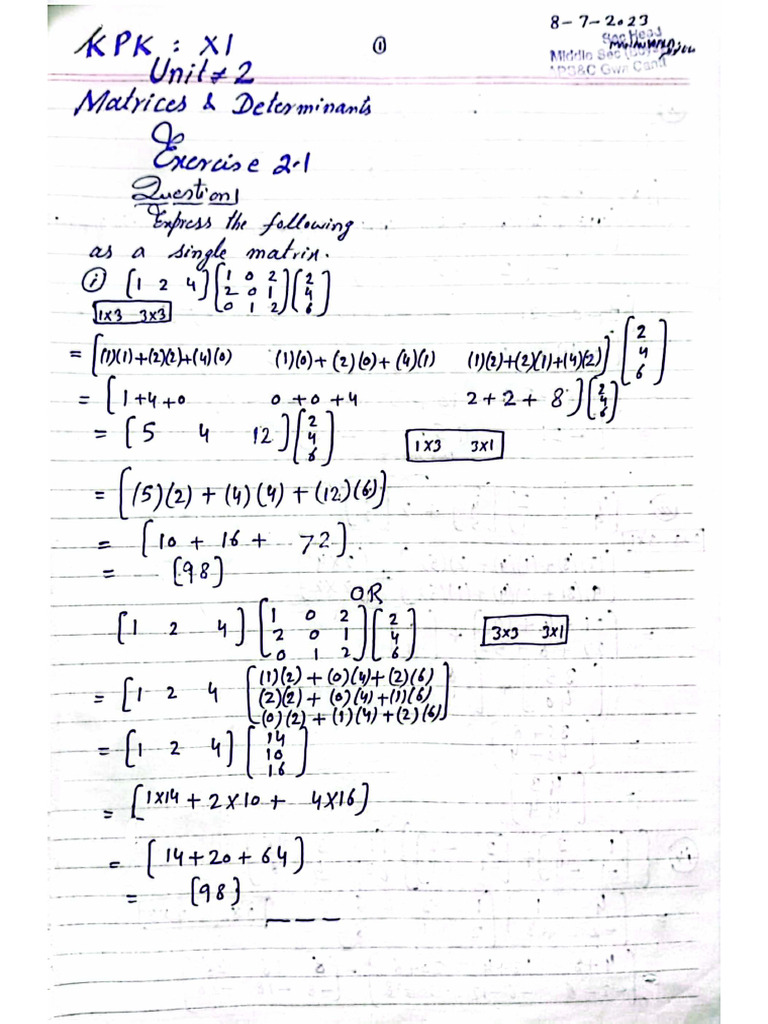 8-7-2023
KPK : XI ①
Sec Head
Unit # 2
Middle Sec
APS&C Gwa Cantt
Matrices & Determinants
Exercise 2.1
Question 1
Express the following
as a single matrix.
(i) [1 2 4] [1 0 2; 2 0 1; 0 1 2] [2; 4; 6]
1x3 3x3
= [(1)(1)+(2)(2)+(4)(0) (1)(0)+(2)(0)+(4)(1) (1)(2)+(2)(1)+(4)(2)] [2; 4; 6]
= [1+4+0 0+0+4 2+2+8] [2; 4; 6]
= [5 4 12] [2; 4; 6] 1x3 3x1
= [(5)(2) + (4)(4) + (12)(6)]
= [10 + 16 + 72]
= [98]
OR
[1 2 4] [1 0 2; 2 0 1; 0 1 2] [2; 4; 6] 3x3 3x1
= [1 2 4 [(1)(2)+(0)(4)+(2)(6); (2)(2)+(0)(4)+(1)(6); (0)(2)+(1)(4)+(2)(6)]
= [1 2 4] [14; 10; 16]
= [1x14 + 2x10 + 4x16]
= [14+20+64]
= [98]